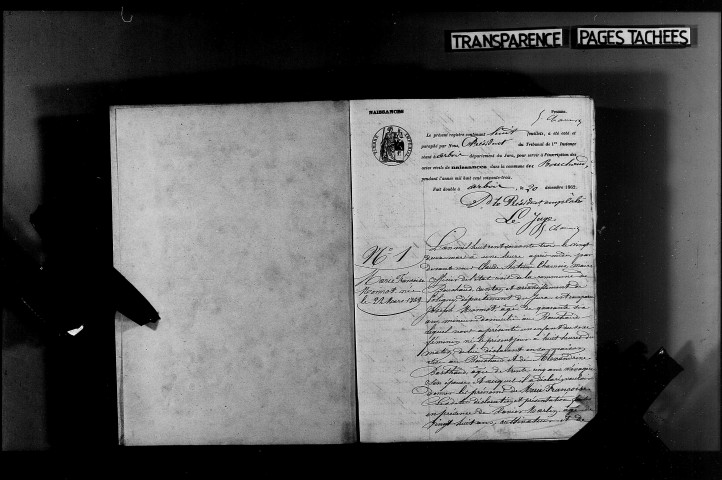 TRANSPARENCE PAGES TACHÉES
NAISSANCES
Premier.
Le présent registre contenant huit feuillets, a été coté et
paraphé par Nous, Président du Tribunal de 1re Instance
séant à arbois département du Jura, pour servir à l'inscription des
actes civils de naissances, dans la commune de Bouchaud
pendant l'année mil huit cent soixante-trois.
Fait double à arbois, le 20 décembre 1862.
Pr le Président empêché
Le Juge
N° 1
Marie Françoise
Monnot née
le 22 Mars
L'an mil huit cent soixante trois le vingt
deux mars à une heure après midi par
devant nous Charles Antoine maire
officier de l'état civil de la commune de
Bouchaud, canton et arrondissement de
Poligny département du Jura est comparu
Joseph Monnot, âgé de quarante
ans domicilié au Bouchaud
lequel nous a présenté un enfant du sexe
féminin né le présent jour à huit heures du
matin, de lui déclarant en son domicile
sis au Bouchaud et de Alexandrine
âgée de trente cinq ans ménagère
son épouse et auquel il a déclaré vouloir
donner les prénoms de Marie Françoise
Les dites déclaration et présentation faites
en présence de Xavier âgé de
vingt huit ans, cultivateur et de